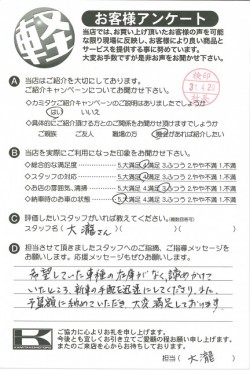 軽
お客様アンケート
当店では、お買い上げ頂いたお客様の声を可能
な限り現場に反映し、お客様により良い商品と
サービスを提供する事に努めています。
大変お手数ですが是非お声をお聞かせ下さい。
A 当店はご紹介を大切にしております。
ご紹介キャンペーンについてお聞かせ下さい。
◇カミタケご紹介キャンペーンのご説明はありましたでしょうか
はい いいえ
◇具体的にご紹介頂ける方とのご関係をお聞かせ頂けますでしょうか
ご親戚 ご友人 職場の方 機会があれば紹介したい
B 当店を実際にご利用になった印象をお聞かせ下さい。
◇総合的な満足度 5.大満足 4.満足 3.ふつう 2.やや不満 1.不満
◇スタッフの対応 5.大満足 4.満足 3.ふつう 2.やや不満 1.不満
◇お店の雰囲気、清掃 5.大満足 4.満足 3.ふつう 2.やや不満 1.不満
◇納車時のお車の状態 5.大満足 4.満足 3.ふつう 2.やや不満 1.不満
C 評価したいスタッフがいれば教えてください。(複数回答可)
スタッフ名( 大瀧さん )
D 担当させて頂きましたスタッフへのご指摘、ご指導メッセージを
お願いします。応援メッセージもぜひお願いします。
希望していた車種の在庫がなく、諦めかけて
いたところ、新車の手配を迅速にしてくださり、また、
予算額に納めていただき大変満足しております。
ご協力に心よりお礼を申し上げます。
今後とも宜しくお引き立てご愛顧の程お願い申し上げます。
またのご来店を心からお待ちしております。
担当( 大瀧 )